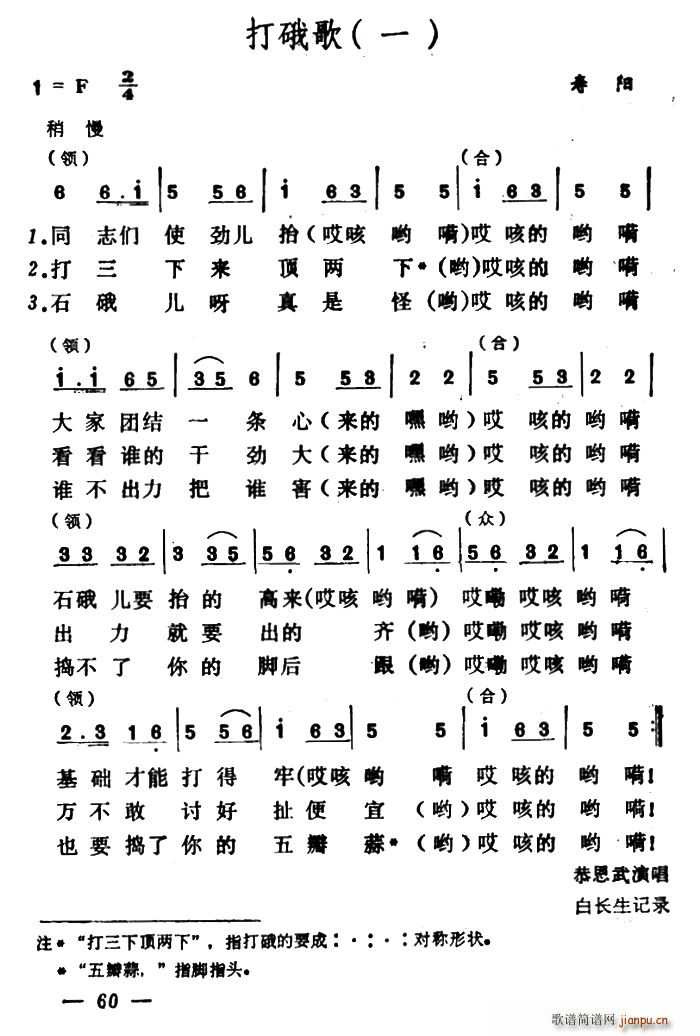 打硪歌(一)
1 = F 2/4 寿阳
稍慢
(领) (合)
6 6.i | 5 5 6 | i 6 3 | 5 5 | i 6 3 | 5 5 |
1.同志们使劲儿抬(哎咳哟嗬)哎咳的哟嗬
2.打三下来顶两下*(哟)哎咳的哟嗬
3.石硪儿呀真是怪(哟)哎咳的哟嗬
(领) (合)
i.i 6 5 | 3 5 6 | 5 5 3 | 2 2 | 5 5 3 | 2 2 |
大家团结一条心(来的嘿哟)哎咳的哟嗬
看看谁的干劲大(来的嘿哟)哎咳的哟嗬
谁不出力把谁害(来的嘿哟)哎咳的哟嗬
(领) (众)
3 3 3 2 | 3 3 5 | 5 6 3 2 | 1 1 6 | 5 6 3 2 | 1 1 6 |
石硪儿要抬的高来(哎咳哟嗬)哎嘞哎咳哟嗬
出力就要出的齐(哟)哎嘞哎咳哟嗬
捣不了你的脚后跟(哟)哎嘞哎咳哟嗬
(领) (合)
2.3 1 6 | 5 5 6 | i 6 3 | 5 5 | i 6 3 | 5 5 :|
基础才能打得牢(哎咳哟嗬哎咳的哟嗬!
万不敢讨好扯便宜(哟)哎咳的哟嗬!
也要捣了你的五瓣蒜*(哟)哎咳的哟嗬!
恭恩武演唱
白长生记录
注*“打三下顶两下”,指打硪的要成:·:·:对称形状。
*“五瓣蒜,”指脚指头。
— 60 —
歌谱简谱网
jianpu.cn